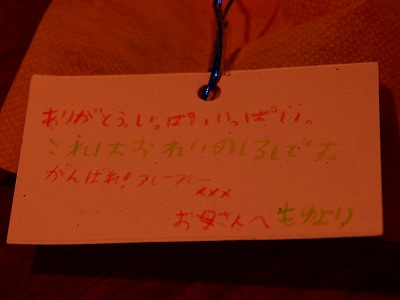 ありがとういっぱいいっぱい。
これはおれいのしるしです。
がんばれ!フレーフレー
xxx
お母さんへ もゆより